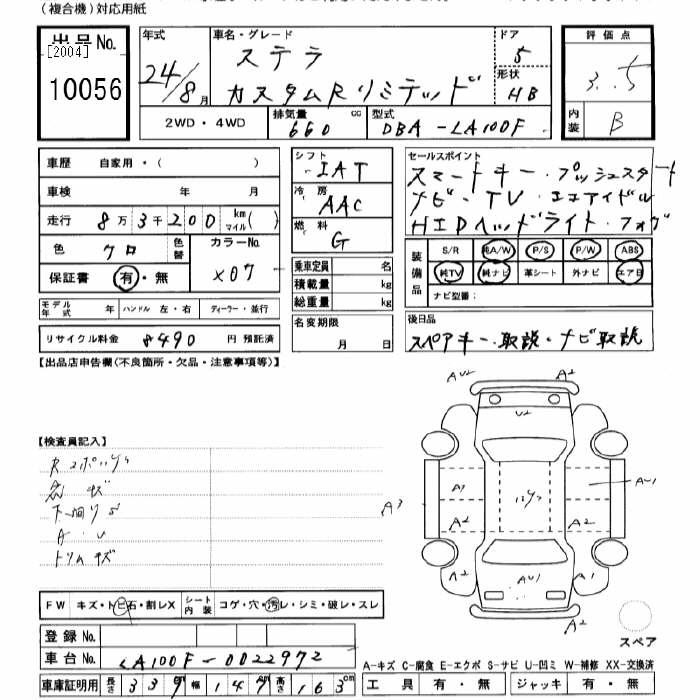 （複合機）対応用紙
出品No. [2004] 10056
年式 24/8月
車名・グレード ステラ カスタムRリミテッド
ドア 5
形状 HB
評価点 3.5
内装 B
2WD・4WD
排気量 660 cc
型式 DBA-LA100F
車歴 自家用・（ ）
車検 年 月
走行 8万3千200 km マイル（ ）
色 クロ 色替
カラーNo. X07
保証書 有・無
モデル年式 年 ハンドル 左・右 ディーラー・並行
リサイクル料金 8490 円 預託済
シフト IAT
冷房 AAC
燃料 G
乗車定員 名
積載量 kg
総重量 kg
名変期限 月 日
セールスポイント
スマートキー・プッシュスタート
ナビ・TV・エコアイドル
HIDヘッドライト・フォグ
装備品 S/R 純A/W P/S P/W ABS
純TV 純ナビ 革シート 外ナビ エアB
ナビ型番：
後日品
スペアキー・取説・ナビ取説
【出品店申告欄（不良箇所・欠品・注意事項等）】
【検査員記入】
下回りS
A・U
トリムキズ
FW キズ・トビ石・割レX シート内装 コゲ・穴・汚レ・シミ・破レ・スレ
登録No.
車台No. LA100F-0022972
車庫証明用 長さ 339 幅 147 高さ 163 cm
AU2 A2
U2
A3 A1 AU1
A2 A2
A2 AU1 A1
A2
スペア
A-キズ C-腐食 E-エクボ S-サビ U-凹ミ W-補修 XX-交換済
工具 有・無 ジャッキ 有・無